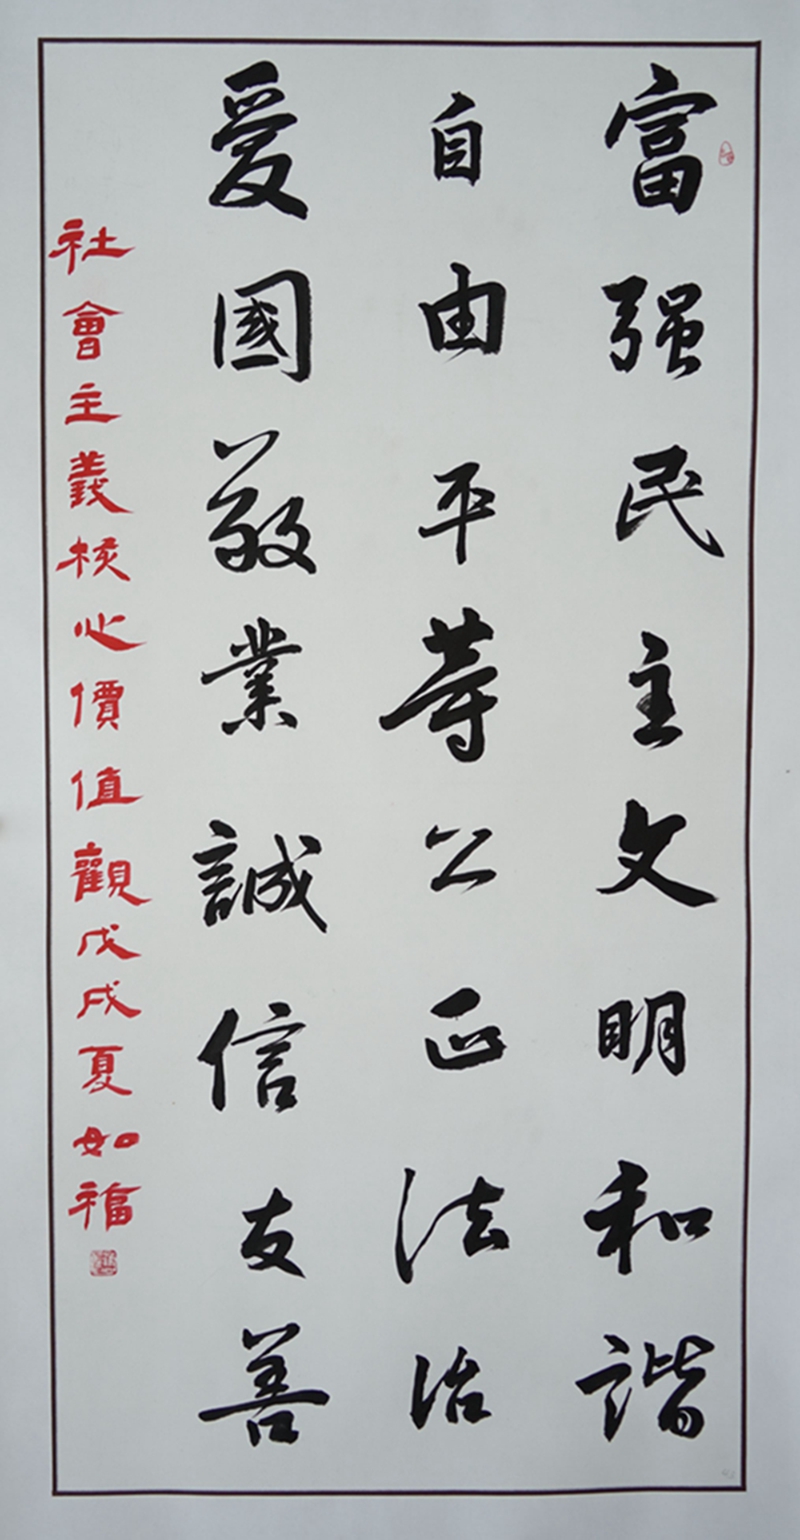 富强民主文明和谐
自由平等公正法治
爱國敬業誠信友善
社會主義核心價值觀戊戌夏如福